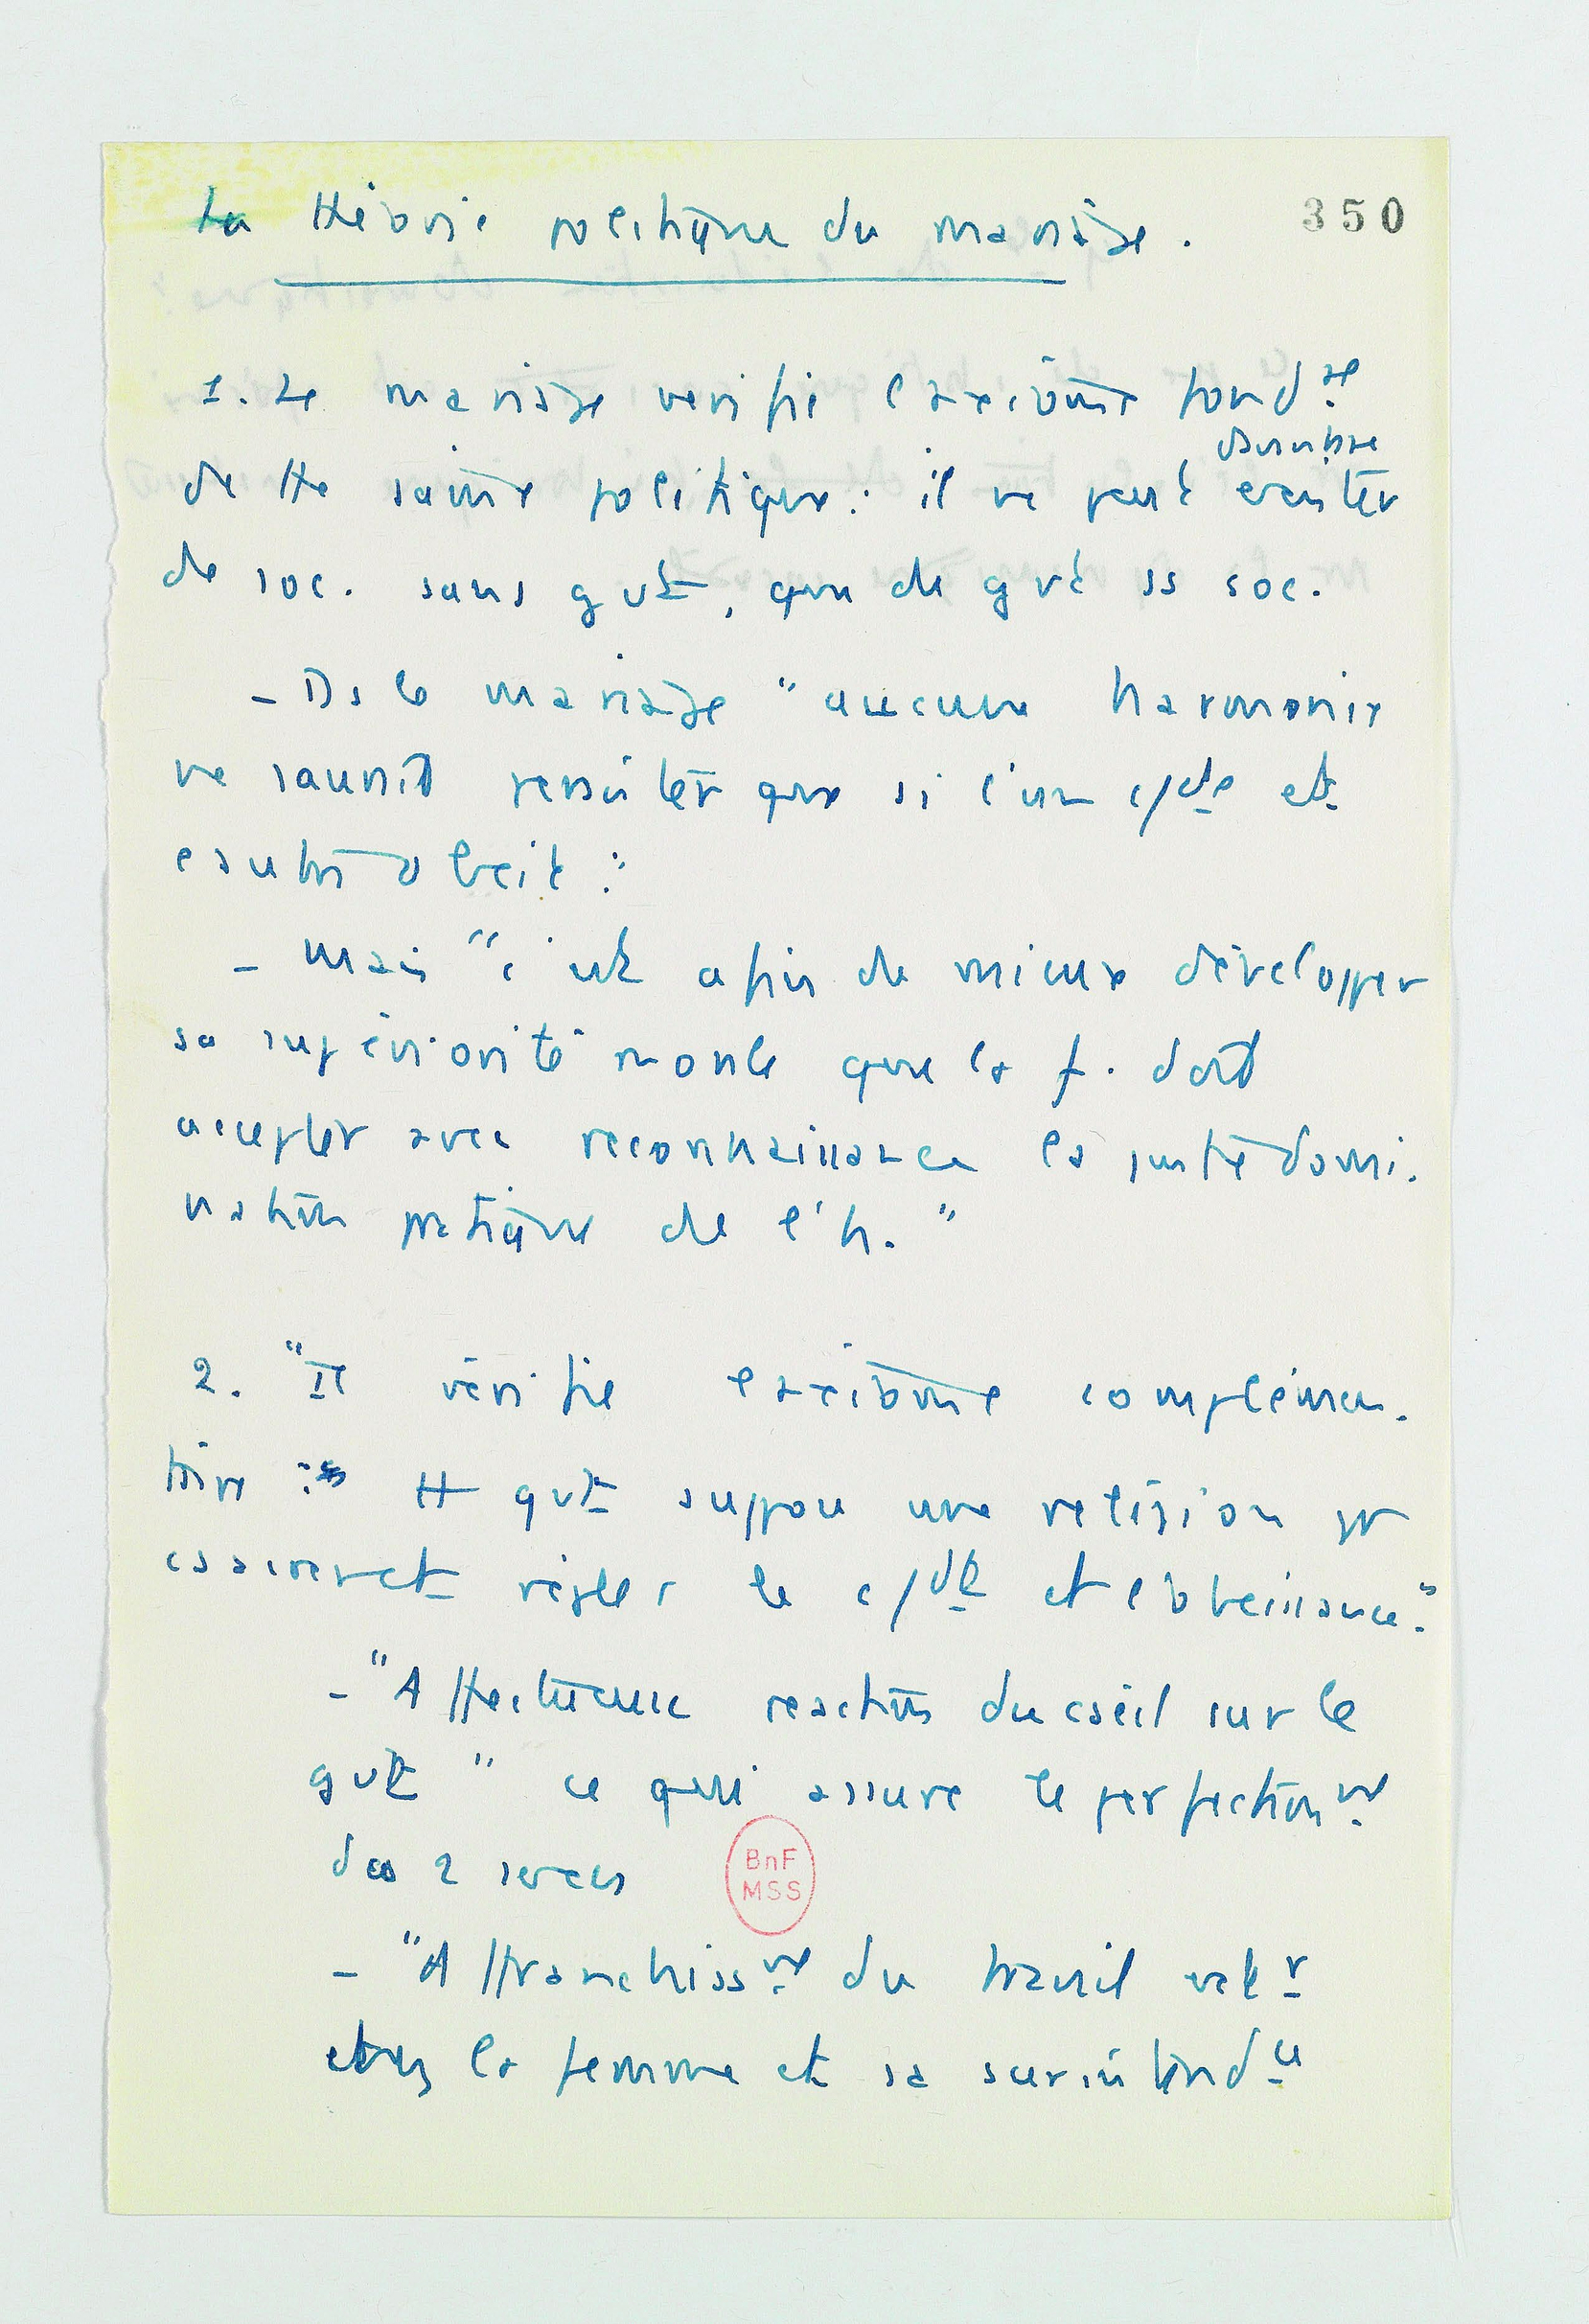 350
La théorie politique du mariage.
1. Le mariage vérifie l'axiome fond.al
de tte saine politique : il ne peut exister
davantage
de soc. sans gvt, que de gvt ss soc.
- Ds le mariage "aucune harmonie
ne saurait résulter que si l'un c/de et
l'autre obéit."
- Mais "c'est afin de mieux développer
sa supériorité morale que la f. doit
accepter avec reconnaissance la juste domi-
nation pratique de l'h."
2. "Il vérifie l'axiome complémen-
taire : tt gvt suppose une religion pr
consacrer et régler le c/dt et l'obéissance."
- "Affectueuse réaction du conseil sur le
gvt" ce qui assure le perfectionnt
des 2 sexes
- "Affranchisst du travail extr
chez la femme et sa surintendce
BnF
MSS